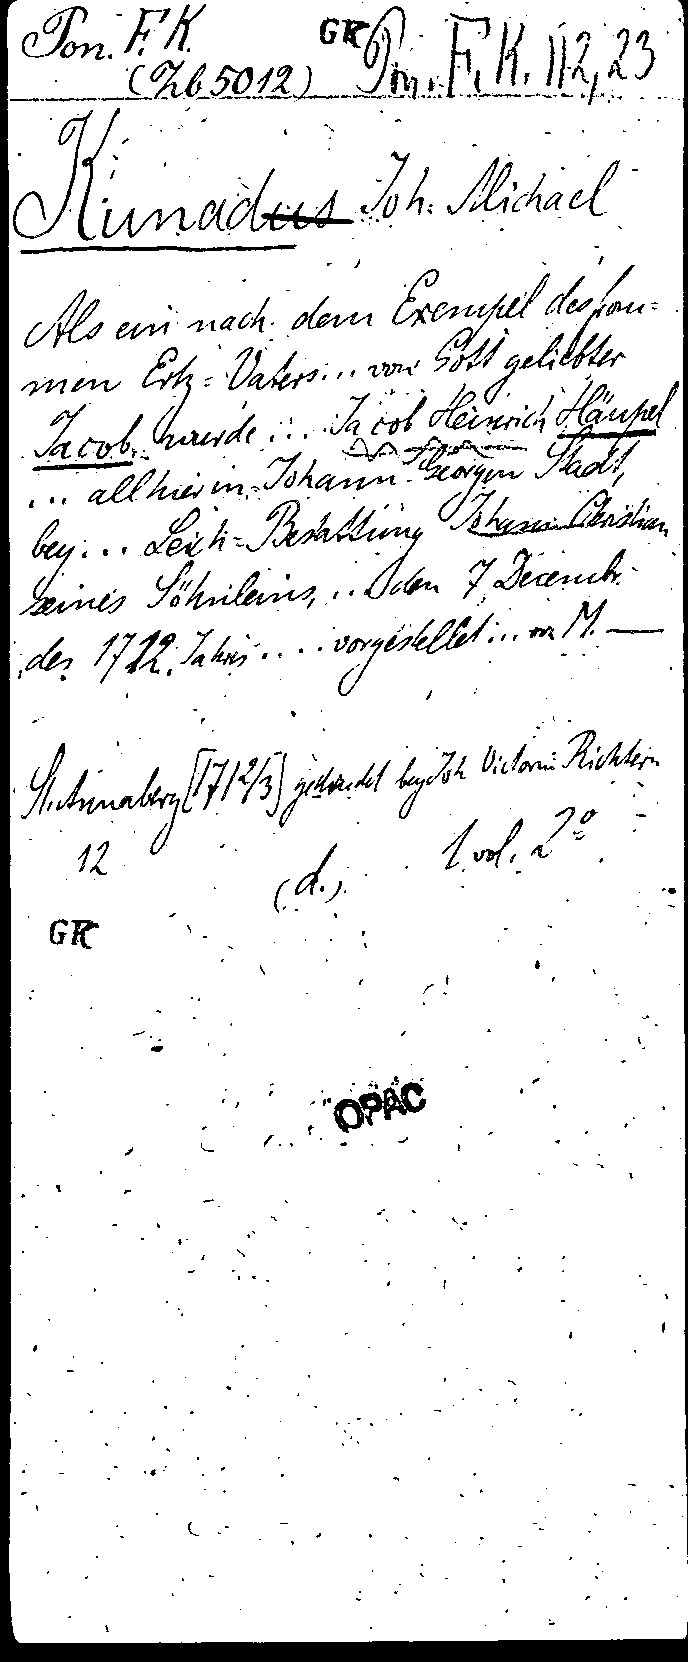 Pon. F.K.
(Zb 5012)
GK Pon. F. K. 112, 23
Kunadus Joh. Michael
Als ein nach dem Exempel des from=
men Ertz=Vaters... von Gott geliebter
Jacob, wurde ... Jacob Heinrich Häupel
... allhier in Johann Georgen Stadt,
bey... Leich=Bestattung Johann Christian
seines Söhnleins, ... den 7 Decembr.
des 1712. Jahrs .... vorgestellet ... von M. —
St. Annaberg [1712/3] gedruckt bey Joh Victorin Richtern
12
(d.)
1 vol. 2°
GK
OPAC